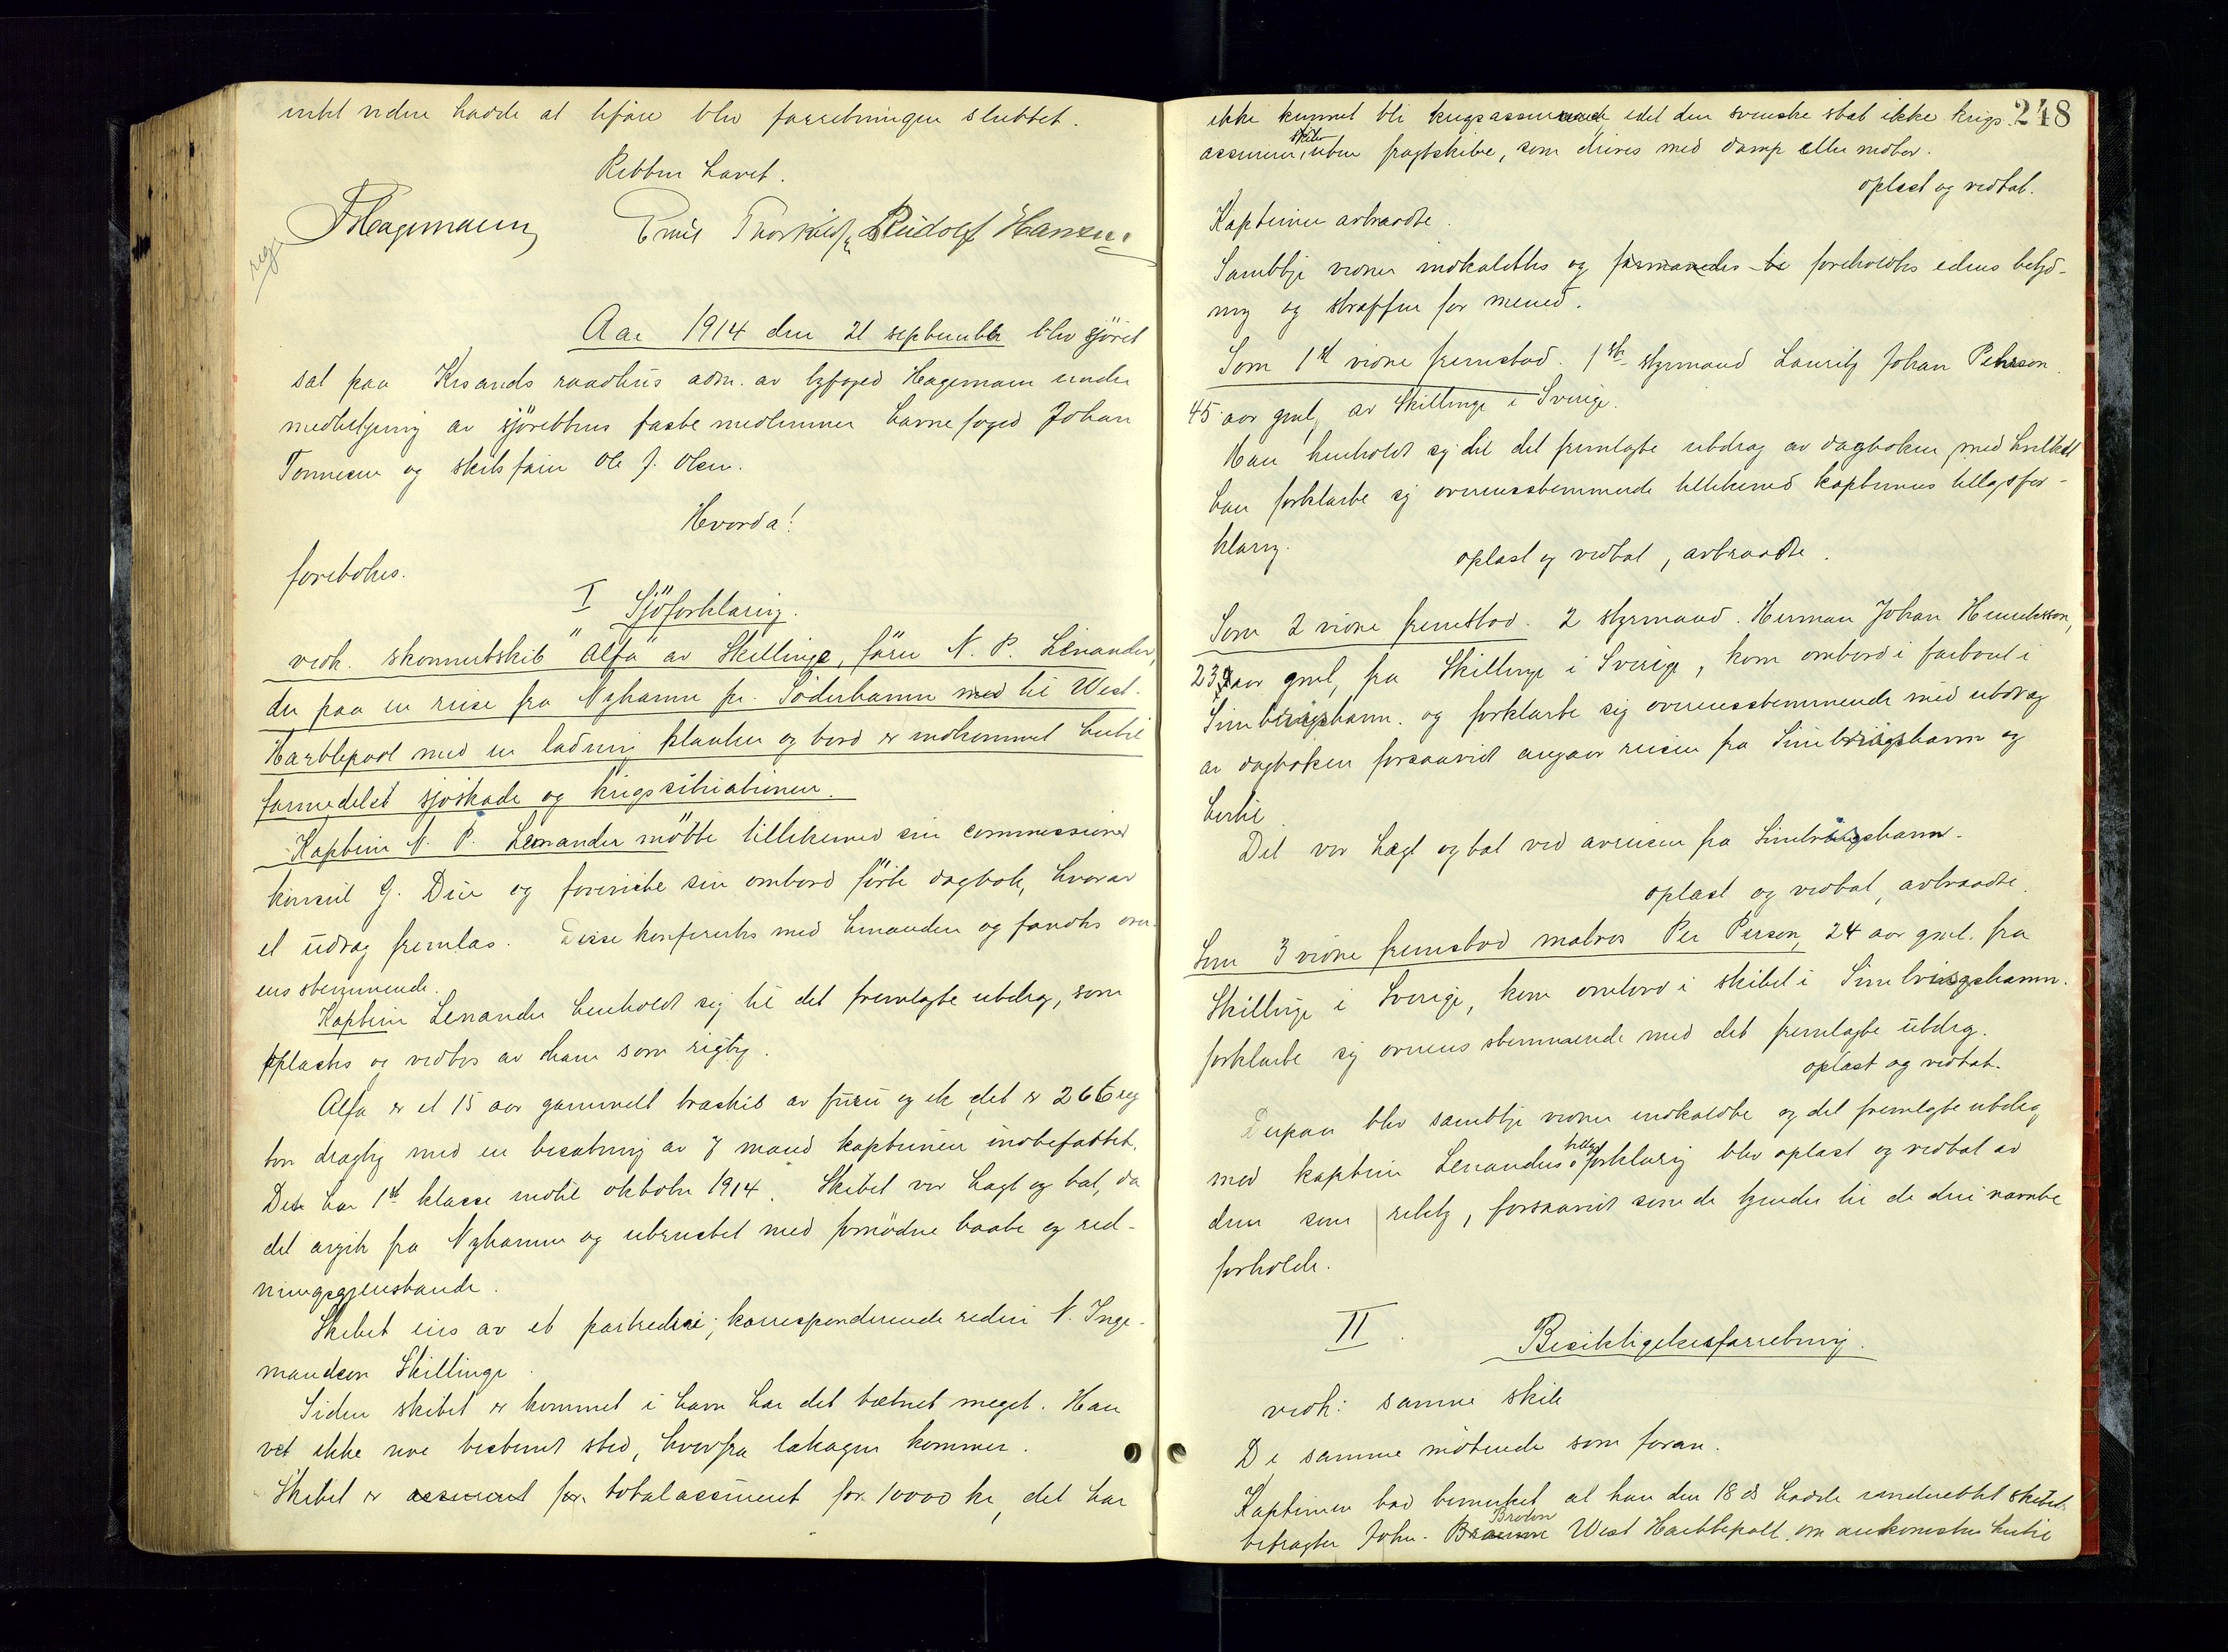 intet videre hadde at tiföie blev forretningen sluttet.
Retten hævet.
FHagemann Emil Rudolf Hansen
reg
Aar 1914 den 21 september blev sjöret
sat paa Krsands raadhus adm. av byfoged Hagemann under
medbetjening av sjörettens faste medlemmer havnefoged Johan
Tönnesen og skibsförer Ole J. Olsen.
Hvorda!
foretokes.
I Sjöforklaring.
vedk. skonnertskib "Alfa" av Skillinge, förer N. P. Lenander,
der paa en reise fra Nyhamn pr. Söderhamn med til West-
Hartlepool med en ladning planker og bord er indkommet hertil
formedelst sjöskade og krigssituationen.
Kaptein N. P. Lenander mötte tillikemed sin commissionær
konsul G. Due og foreviste sin ombord förte dagbok, hvorav
et udrag fremlas. Disse konferertes med hinanden og fandtes over-
ensstemmende.
Kaptein Lenander henholdt sig til det fremlagte utdrag, som
oplæstes og vedtoges av ham som rigtig.
Alfa er et 15 aar gammelt træskib av furu og ek, det er 266 reg
ton drægtig med en besætning av 7 mand kapteinen indbefattet.
Det har 1st klasse indtil oktober 1914. Skibet var tægt og tæt, da
det avgik fra Nyhamn og utrustet med fornödne baate og red-
ningsgjenstande.
Skibet eies av et partrederi; korresponderende reder N. Inge-
mandson Skillinge.
Siden skibet er kommet i havn har det lætnet meget. Han
vet ikke noe bestemt sted, hvorfra lækagen kommer.
Skibet er assurert for totalassurert for 10000 kr, det har
248
ikke kunnet bli krigsassurerede, idet den svenske stat ikke krigs-
assurerer skibe, uten fragtskibe, som drives med damp eller motor.
oplæst og vedtat.
Kapteinen avtraadte.
Samtlige vidner indkaldtes og formanedes te foreholdtes edens betyd-
ning og straffen for mened.
Som 1st vidne fremstod. 1ste styrmand Lauritz Johan Pehrson
45 aar gml, av Skillinge i Sverige.
Han henholdt sig til det fremlagte utdrag av dagboken, med hvilket
han forklarte sig overensstemmende tillikemed kapteinens tillægsfor-
klaring.
oplæst og vedtat, avtraadte.
Som 2 vidne fremstod. 2 styrmand. Herman Johan Henriksson,
23 aar gml, fra Skillinge i Sverige, kom ombord i fartöiet i
Simbrisgshamn. og forklarte sig overensstemmende med utdrag
av dagboken forsaavidt angaar reisen fra Simbrisgshamn og
hertil.
Det var tægt og tæt ved avreisen fra Simbrisgshamn.
oplæst og vedtat, avtraadte.
Som 3 vidne fremstod matros Per Person, 24 aar gml. fra
Skillinge i Sverige, kom ombord i skibet i Simbrisgshamn.
forklarte sig overensstemmende med det fremlagte utdrag.
oplæst og vedtat.
Derpaa blev samtlige vidner indkaldte og det fremlagte utdrag
med kaptein Lenanders tillægsforklaring blev oplæst og vedtat av
dem som retlig, forsaavidt som de kjender til de deri nævnte
forholde.
II. Besiktigelsesforretning.
vedk: samme skib
De samme mötende som foran.
Kapteinen bad bemerket, at han den 18 ds hadde underrettet skibets
befragter John. Braunn Brown West Hartlepool om ankomsten hertil